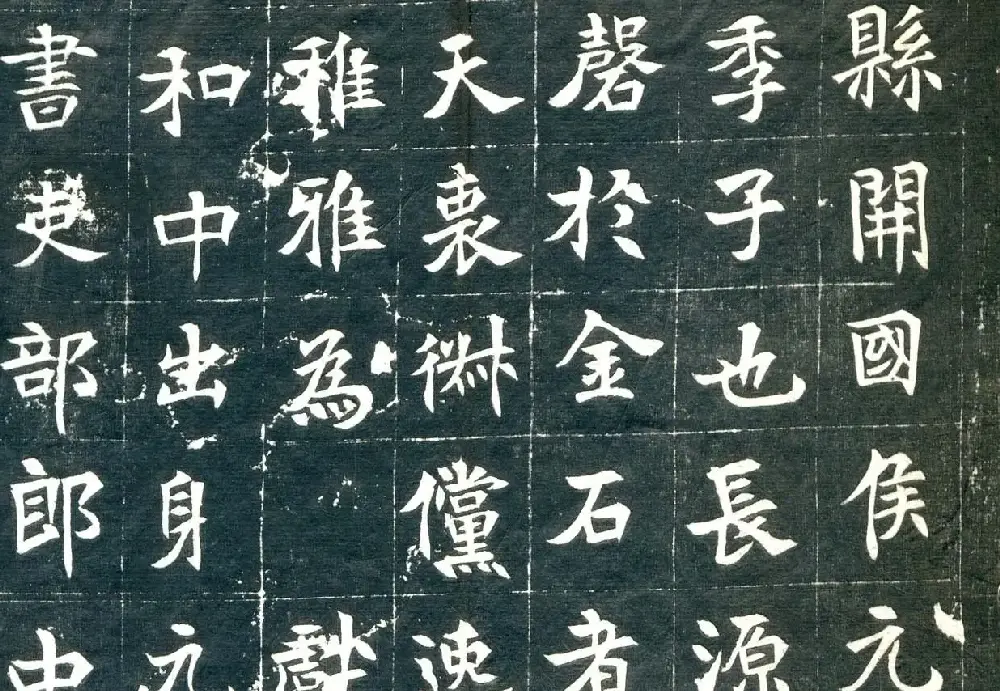 縣開國侯元
季子也長源
罄於金石者
天衷儻速
稚雅為
和中出身元
書吏部郎中